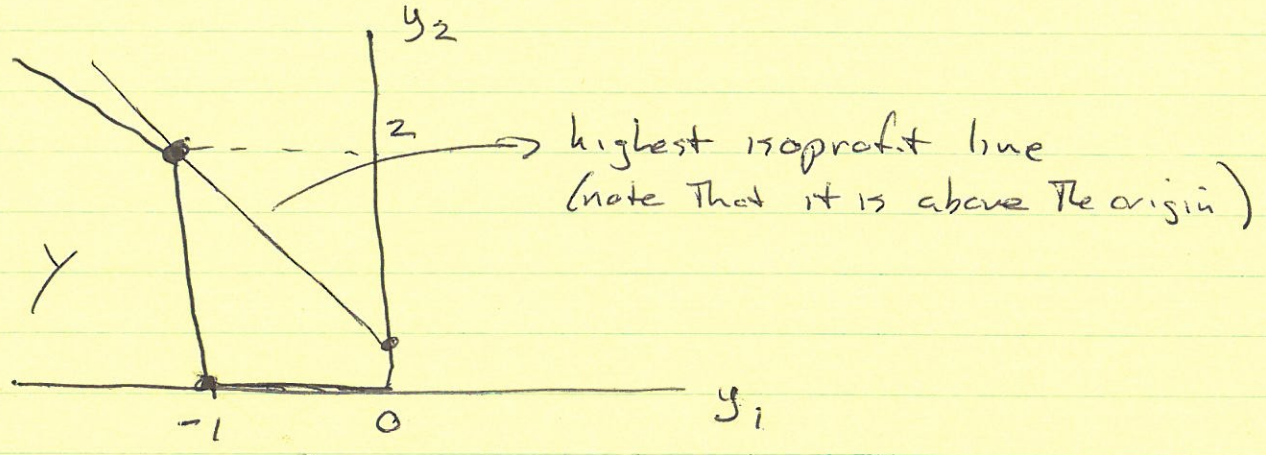 y₂
2
highest isoprofit line
(note that it is above the origin)
Y
-1
0
y₁